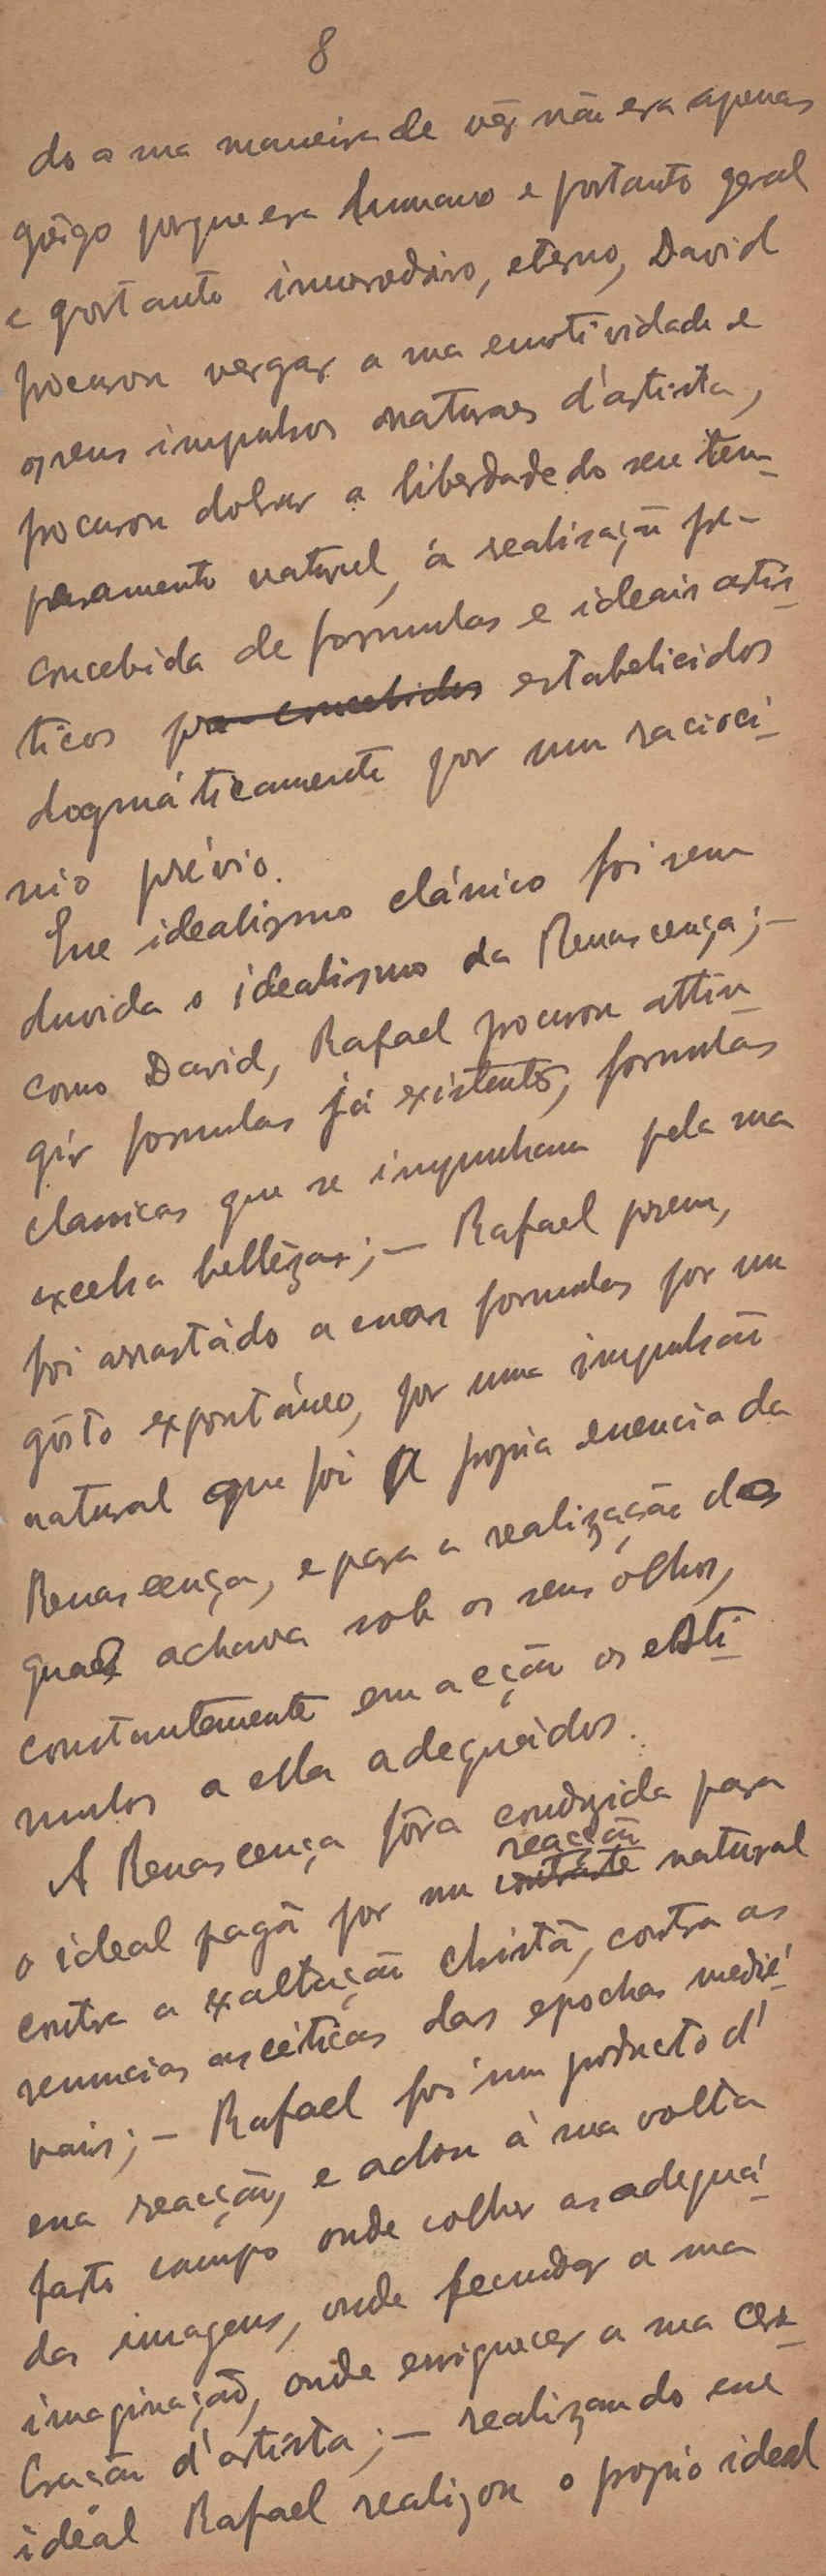 8
do a sua maneira de vêr não era apenas
grêgo porque era humano e portanto geral
e portanto imorredoiro, eterno, David
procurou vergar a sua emotividade e
os seus impulsos naturaes d'artista,
procurou dobrar a liberdade do seu tem-
peramento natural, á realisação pre-
concebida de formulas e ideais artis-
ticos pre-concebidos estabelicidos
dogmáticamente por um racioci-
nio prévio.
Esse idealismo clássico foi sem
duvida o idealismo da Renascença; –
como David, Rafael procurou attin-
gir formulas já existentes, formulas
classicas que se impunham pela sua
excelsa bellêza; – Rafael porem,
foi arrastádo a essas formulas por um
gôsto expontáneo, por uma impulsão
natural que foi a propria essencia da
Renascença, e para a realização das
quaes achava sob os seus ólhos,
constantemente em acção os esti-
mulos a ella adequádos.
A Renascença fôra conduzida para
reacção
o ideal pagã por um contráste natural
contra a exaltação christã, contra as
renuncias ascéticas das epochas medié-
vais; – Rafael foi um producto d'
essa reacção, e achou á sua volta
fasto campo onde colher as adequá-
das imagens, onde fecundar a sua
imaginação, onde enriquecer a sua cere-
bração d'artista; – realizando esse
ideal Rafael realizou o proprio ideal